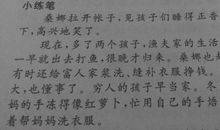 小练笔
桑娜拉开帐子，见孩子们睡得正香
下，高兴地笑了。
现在，多了两个孩子，渔夫家的生活
一早就出去打鱼，很晚才归来。桑娜也
有时还给富人家浆洗、缝补衣服挣钱。
大，也懂事了。穷人的孩子早当家。冬
妈的手冻得像红萝卜，忙用自己的手活
着帮妈妈洗衣服。